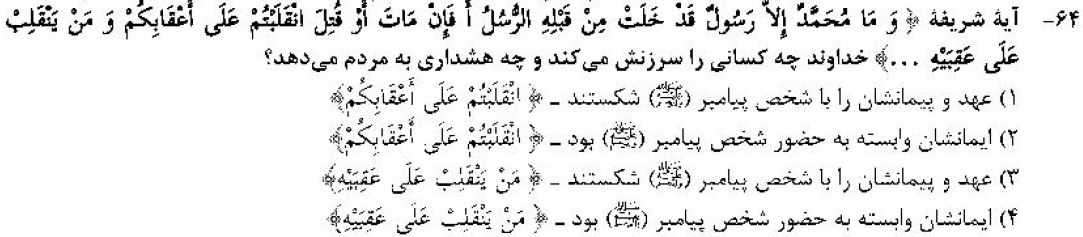 ۶۴- آیهٔ شریفهٔ ﴿ وَ مَا مُحَمَّدٌ إِلاَّ رَسُولٌ قَدْ خَلَتْ مِنْ قَبْلِهِ الرُّسُلُ أَ فَإِنْ مَاتَ أَوْ قُتِلَ انْقَلَبْتُمْ عَلَى أَعْقَابِكُمْ وَ مَنْ يَنْقَلِبْ
عَلَى عَقِبَيْهِ ...﴾ خداوند چه کسانی را سرزنش می‌کند و چه هشداری به مردم می‌دهد؟
۱) عهد و پیمانشان را با شخص پیامبر (ﷺ) شکستند ـ ﴿ انْقَلَبْتُمْ عَلَى أَعْقَابِكُمْ﴾
۲) ایمانشان وابسته به حضور شخص پیامبر (ﷺ) بود ـ ﴿ انْقَلَبْتُمْ عَلَى أَعْقَابِكُمْ﴾
۳) عهد و پیمانشان را با شخص پیامبر (ﷺ) شکستند ـ ﴿ مَنْ يَنْقَلِبْ عَلَى عَقِبَيْهِ﴾
۴) ایمانشان وابسته به حضور شخص پیامبر (ﷺ) بود ـ ﴿ مَنْ يَنْقَلِبْ عَلَى عَقِبَيْهِ﴾